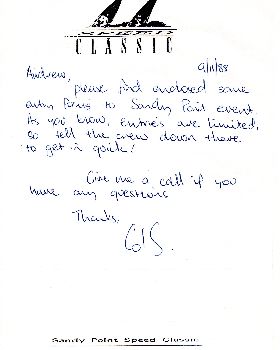 SPEED
CLASSIC
9/11/88
Andrew,
please find enclosed some
entry forms to Sandy Point event.
As you know, entries are limited,
so tell the crew down there
to get in quick!
Give me a call if you
have any questions
Thanks,
Sandy Point Speed Classic